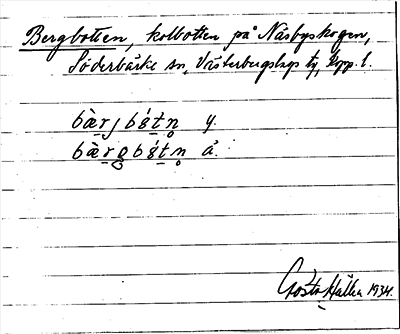 Bergbotten, kolbotten på Näsbyskogen,
Söderbärke sn, Västerbergslags tg, Kpp. l.
bàrj bótn̥ y.
bàrg bótn̥ å.
Gösta 1934.